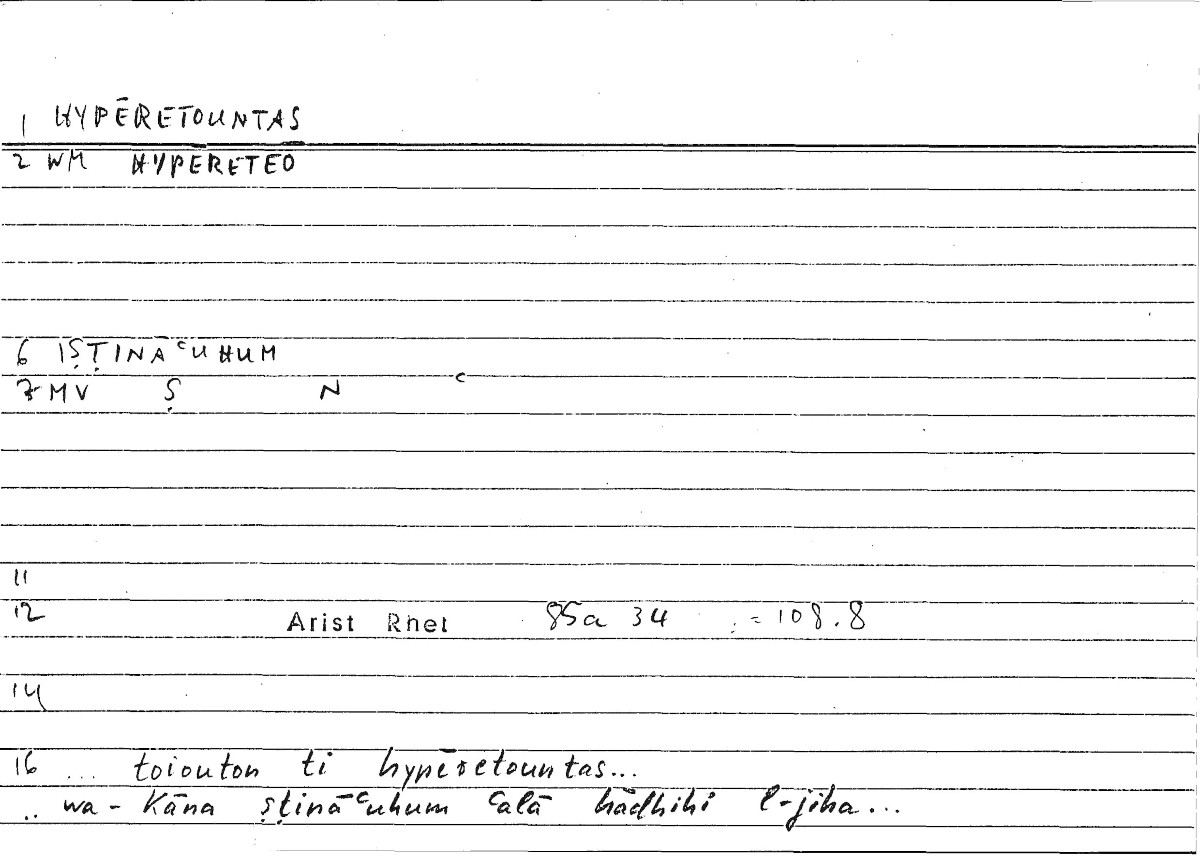 1 HYPĒRETOUNTAS
2 WM HYPERETEO
6 IṢṬINĀᶜUHUM
7 MV Ṣ N ᶜ
11
12 Arist Rhet 85a 34 := 108.8
14
16 ... toiouton ti hypēretountas...
.. wa-Kāna ṣṭināᶜuhum ᶜalā hādhihi l-jiha...